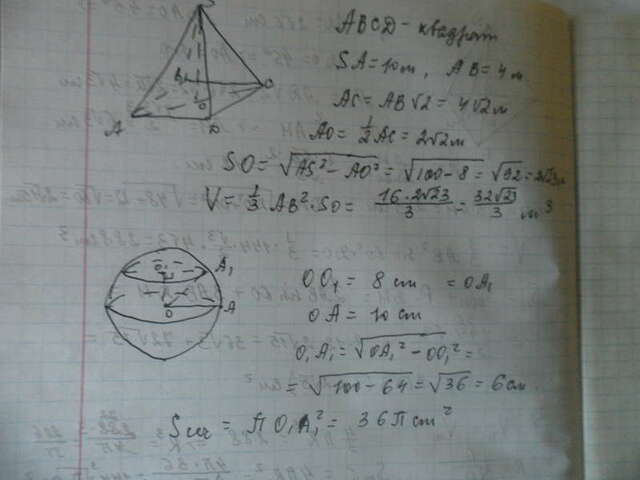 S
B
C
O
A
D
ABCD - квадрат
SA = 10 м, AB = 4 м
AC = AB√2 = 4√2 м
AO = 1/2 AC = 2√2 м
SO = √(AS² - AO²) = √(100 - 8) = √92 = 2√23 м
V = 1/3 · AB² · SO = 16·2√23/3 = 32√23/3 м³
O₁
A₁
O
A
OO₁ = 8 cm = OA₁
OA = 10 cm
O₁A₁ = √(OA₁² - OO₁²) =
= √(100 - 64) = √36 = 6 см
Sсеч = П O₁A₁² = 36П cm²